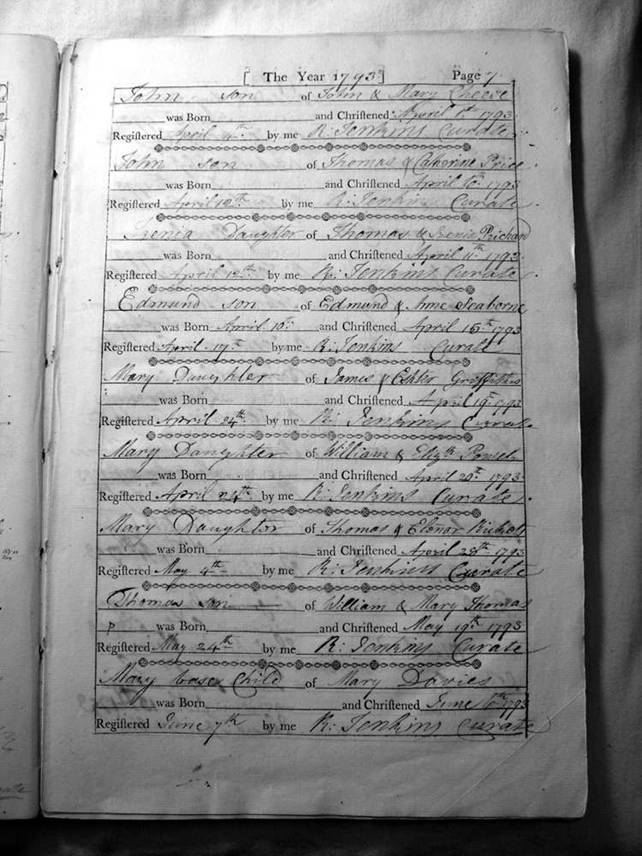 [ The Year 1793 ] Page 7
John son of John & Mary Cheese
was Born and Chriſtened April 1st 1793
Regiſtered April by me R: Jenkins Curate
John son of Thomas & Catherine Price
was Born and Chriſtened April 10th 1793
Regiſtered April 12th by me R: Jenkins Curate
Daughter of Thomas & Prichard
was Born and Chriſtened April 11th 1793
Regiſtered April 12th by me R: Jenkins Curate
Edmund son of Edmund & Anne Seaborne
was Born April 10th and Chriſtened April 16th 1793
Regiſtered April 17th by me R: Jenkins Curate
Mary Daughter of James & Esther Griffiths
was Born and Chriſtened April 19th 1793
Regiſtered April 24th by me R: Jenkins Curate
Mary Daughter of William & Elizth Powell
was Born and Chriſtened April 20th 1793
Regiſtered April 24th by me R: Jenkins Curate
Mary Daughter of Thomas & Elenor
was Born and Chriſtened April 28th 1793
Regiſtered May 4th by me R: Jenkins Curate
Thomas son of William & Mary Thomas
P was Born and Chriſtened May 19th 1793
Regiſtered May 24th by me R: Jenkins Curate
Mary base Child of Mary Davies
was Born and Chriſtened June 6th 1793
Regiſtered June 7th by me R: Jenkins Curate